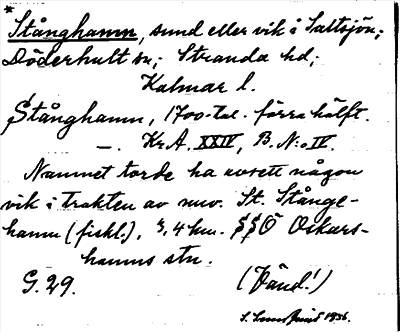 * Stånghamn, sund eller vik i Saltsjön;
Döderhult sn; Stranda hd;
Kalmar l.
Stånghamn, 1700-tal. förra hälft.
—. Kr. A. XXIV, B. N:o IV.
Namnet torde ha avsett någon
vik i trakten av nuv. St. Stånge-
hamn (fiskl.), 3,4 km. SSÖ Oskars-
hamns stn.
G. 29.
(Vänd!)
1936.